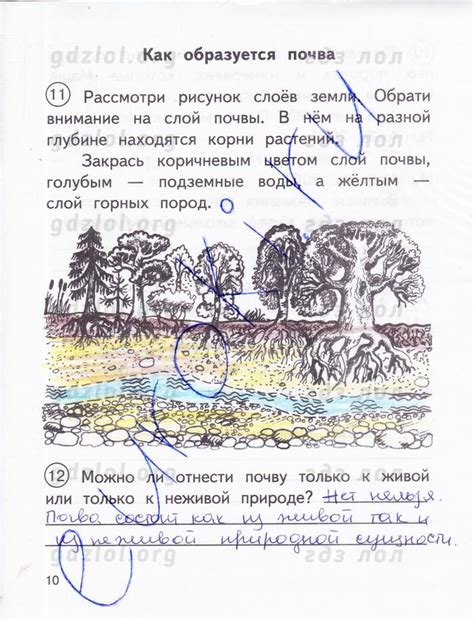 gdzlol.org гдз лол
Как образуется почва
11 Рассмотри рисунок слоёв земли. Обрати
внимание на слой почвы. В нём на разной
глубине находятся корни растений.
Закрась коричневым цветом слой почвы,
голубым — подземные воды, а жёлтым —
слой горных пород.
12 Можно ли отнести почву только к живой
или только к неживой природе? Нет нельзя.
Почва состоит как из живой так и
из неживой природной сущности.
gdzlol.org гдз лол
10